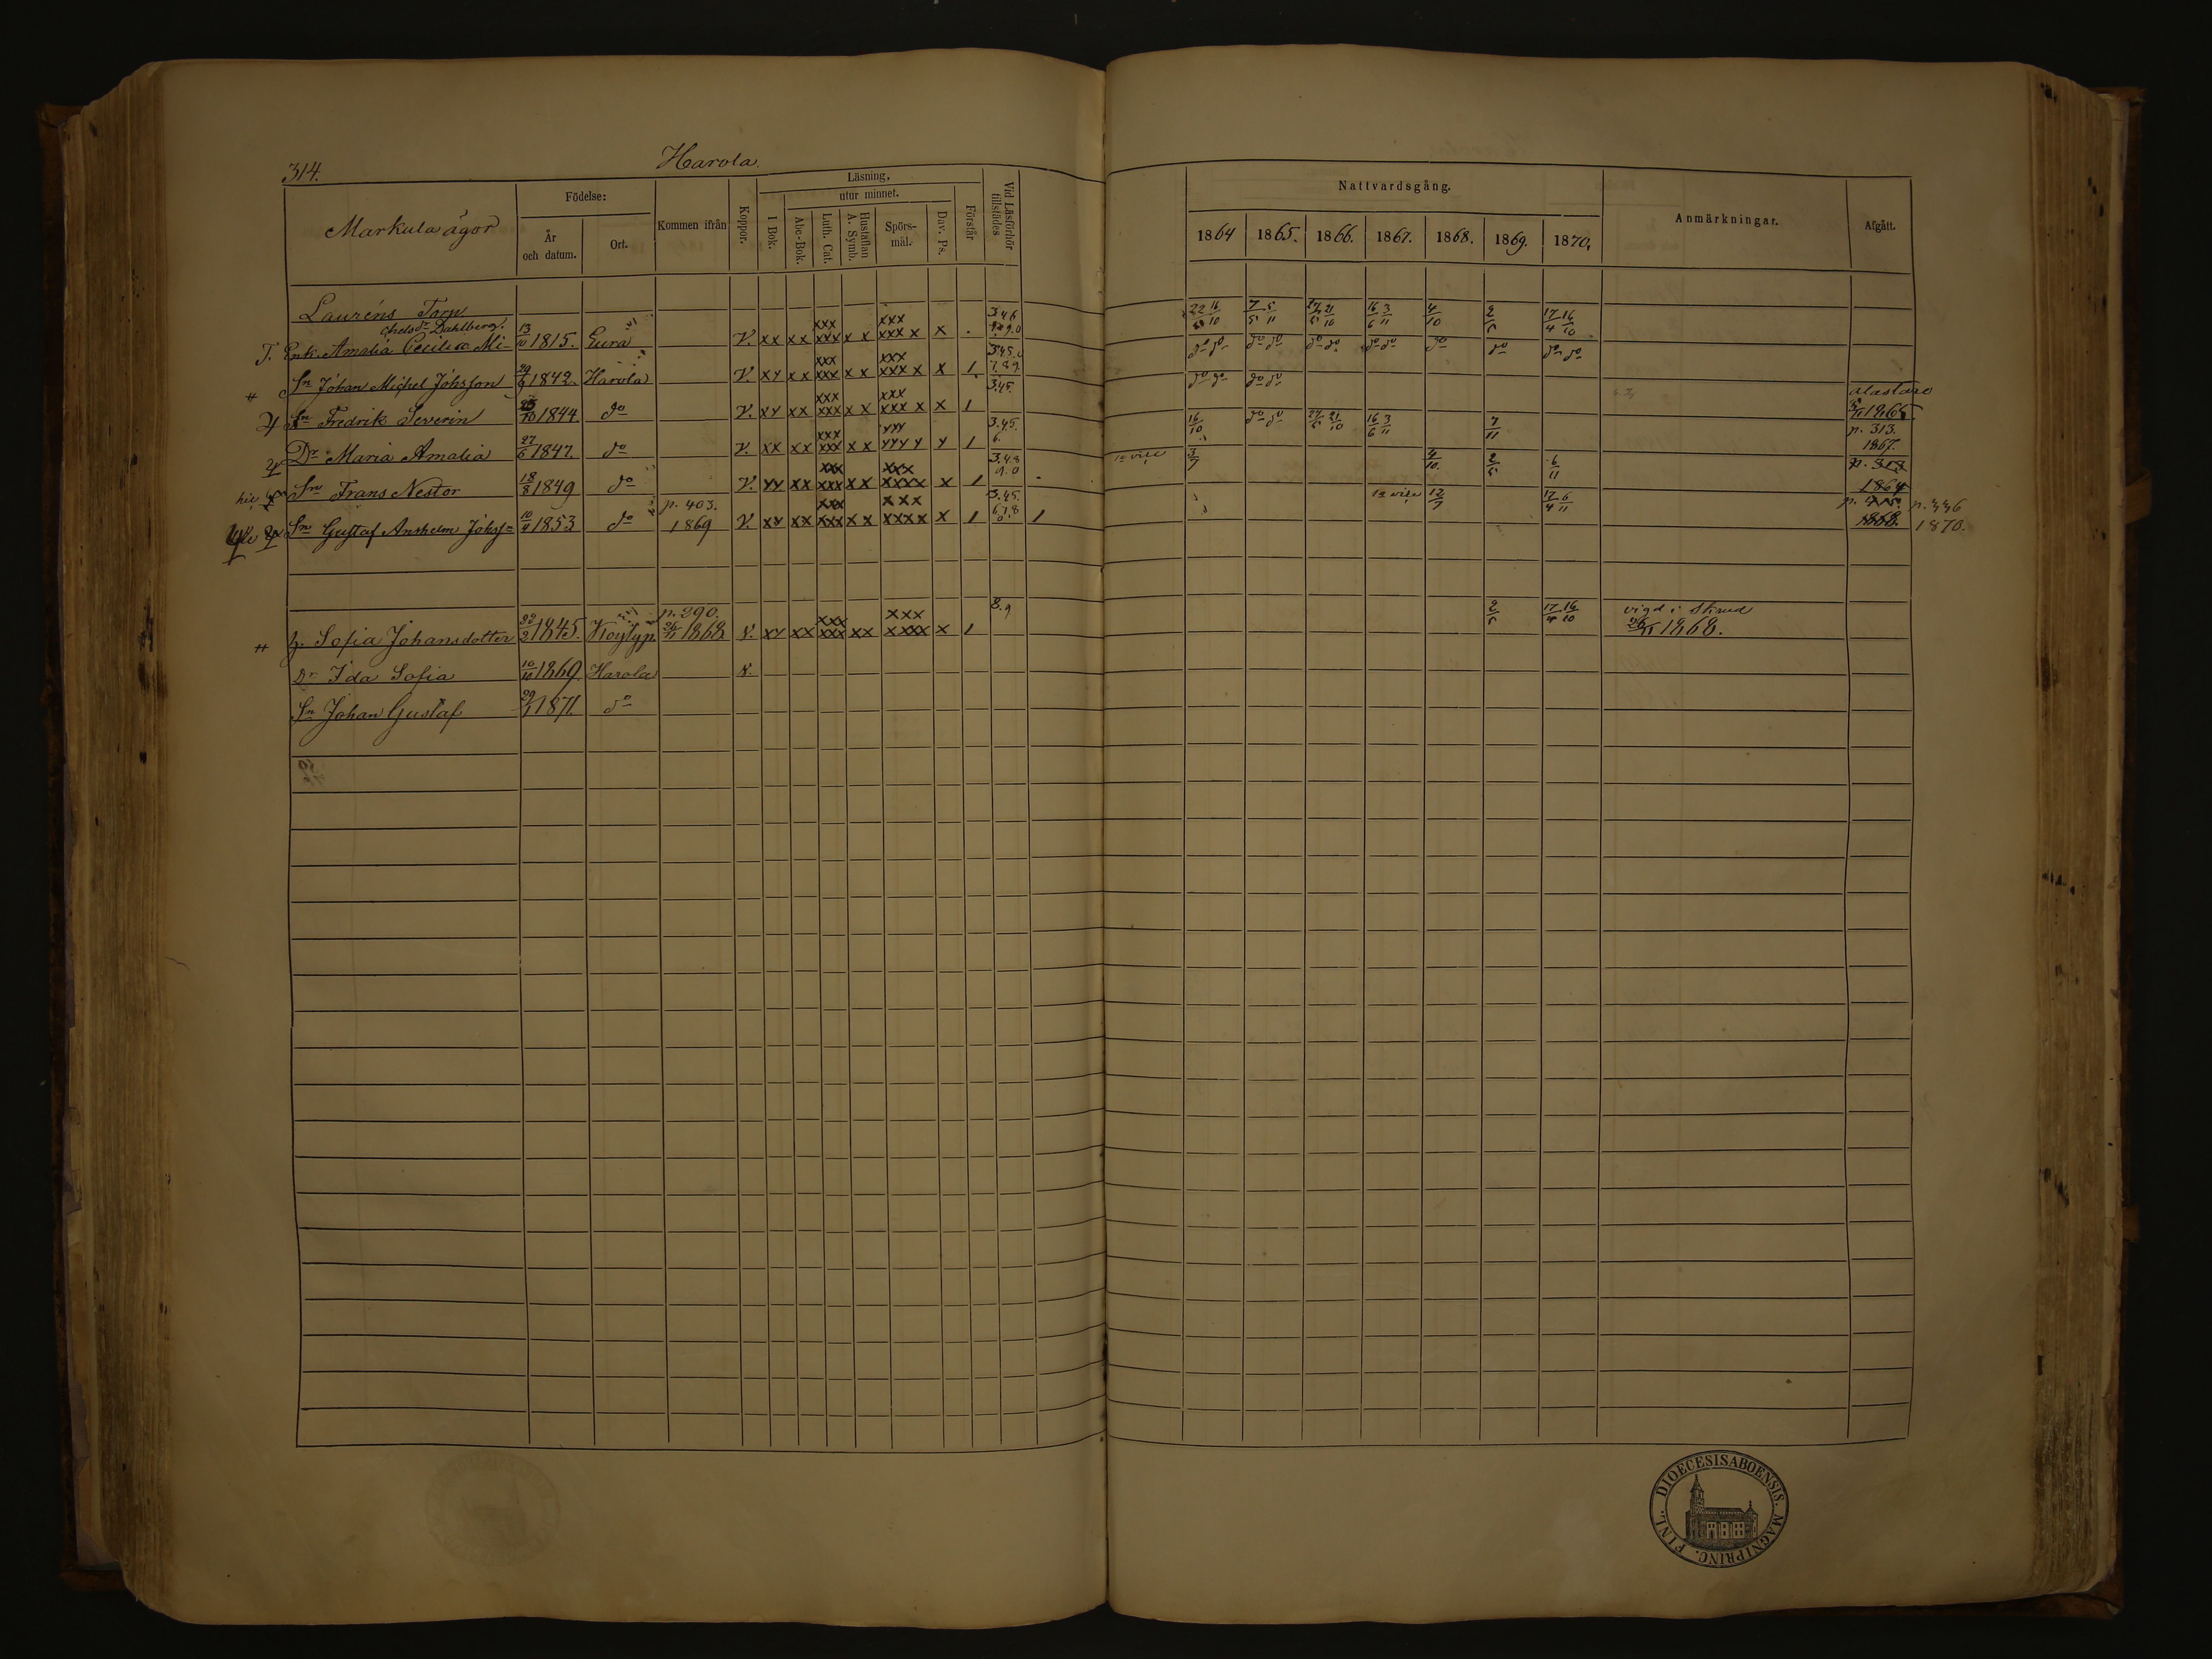 314.
Harola.
Markula ägor
Födelse:
År och datum.
Ort.
Kommen ifrån
Koppor.
Läsning,
utur minnet.
I Bok.
Abc-Bok.
Luth. Cat.
Hustaflan A. Symb.
Spörs-mål.
Dav. Ps.
Förstår
Vid Läsförhör tillstädes
Nattvardsgång.
1864 1865. 1866. 1867. 1868. 1869. 1870.
Anmärkningar.
Afgått.
Lauréns Torp
chelsdr Dahlberg.
T. Enk. Amalia Cecilia Mi- 13/10 1815. Eura V. xx xx xxx xxx x x xxx xxx x x 22/5 16/10 7/5 5/11 27/5 21/10 16/6 3/11 4/10 2/5 17/4 16/10
Sn Johan Michel Johsson 1842. Harola V. xx xx xxx xxx x x xxx xxx x x 1 do do do do do do do do do do do do
Alastaro
Sn Fredrik Severin 1844 do V. xx xx xxx xxx x x xxx xxx x x 1 3.45. do do do do
p. 313.
1867.
Dr Maria Amalia 27/6 1847. do V. xx xx xxx xxx x x 1 3.45. 6. 16/10 do do 27/5 21/10 16/6 3/11 7/11
Sn Frans Nestor 18/8 1849 do V. xx xx xxx xxx x x xxx xxxx x 1 3.4.8 9.0 3/7 4/10. 2/5 6/11
p. 403.
Sn Gustaf Anshelm Johss= 10/4 1853 do 1869 V. xx xx xxx xxx x x xxx xxxx x 1 3.45. 6.7.8 1 12/7 17/4 6/11 1868. p. 336 1870.
p. 290.
h. Sofia Johansdotter 22/2 1845. 26/11 1868 V. xx xx xxx xxx xx xxx xxxx x 1 8.9 2/5 17/4 16/10 vigd i Skrud
26/11 1868.
Dr Ida Sofia 10/10 1869 Harola V.
Sn Johan Gustaf 1871. do
DIOECESIS ABOENSIS. MAGNI PRINC. FINL.